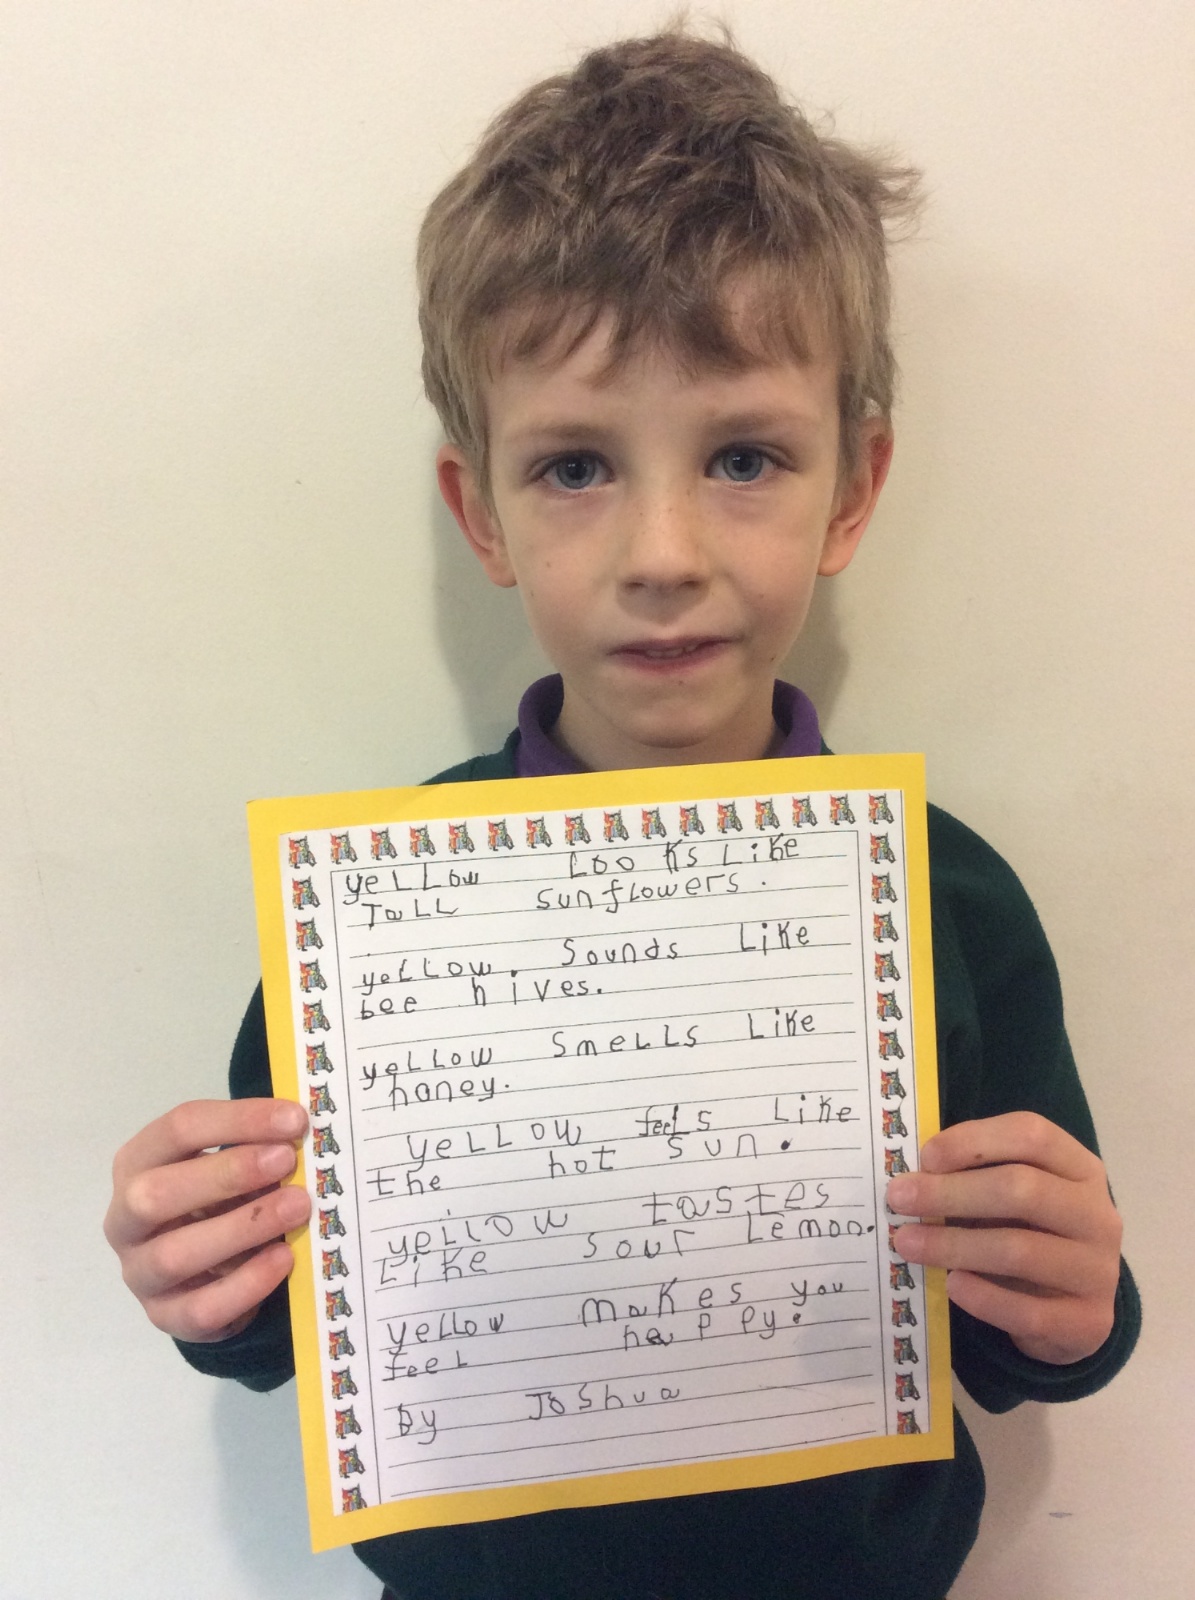 yeLLow Looks Like
TaLL sunfLowers.
yeLLow. Sounds Like
bee hives.
yeLLow SmeLLs Like
honey.
yeLLow feeLs Like
the hot sun.
yeLLow tastes
Like sour Lemon.
yeLLow makes you
feeL happy.
By JoShua